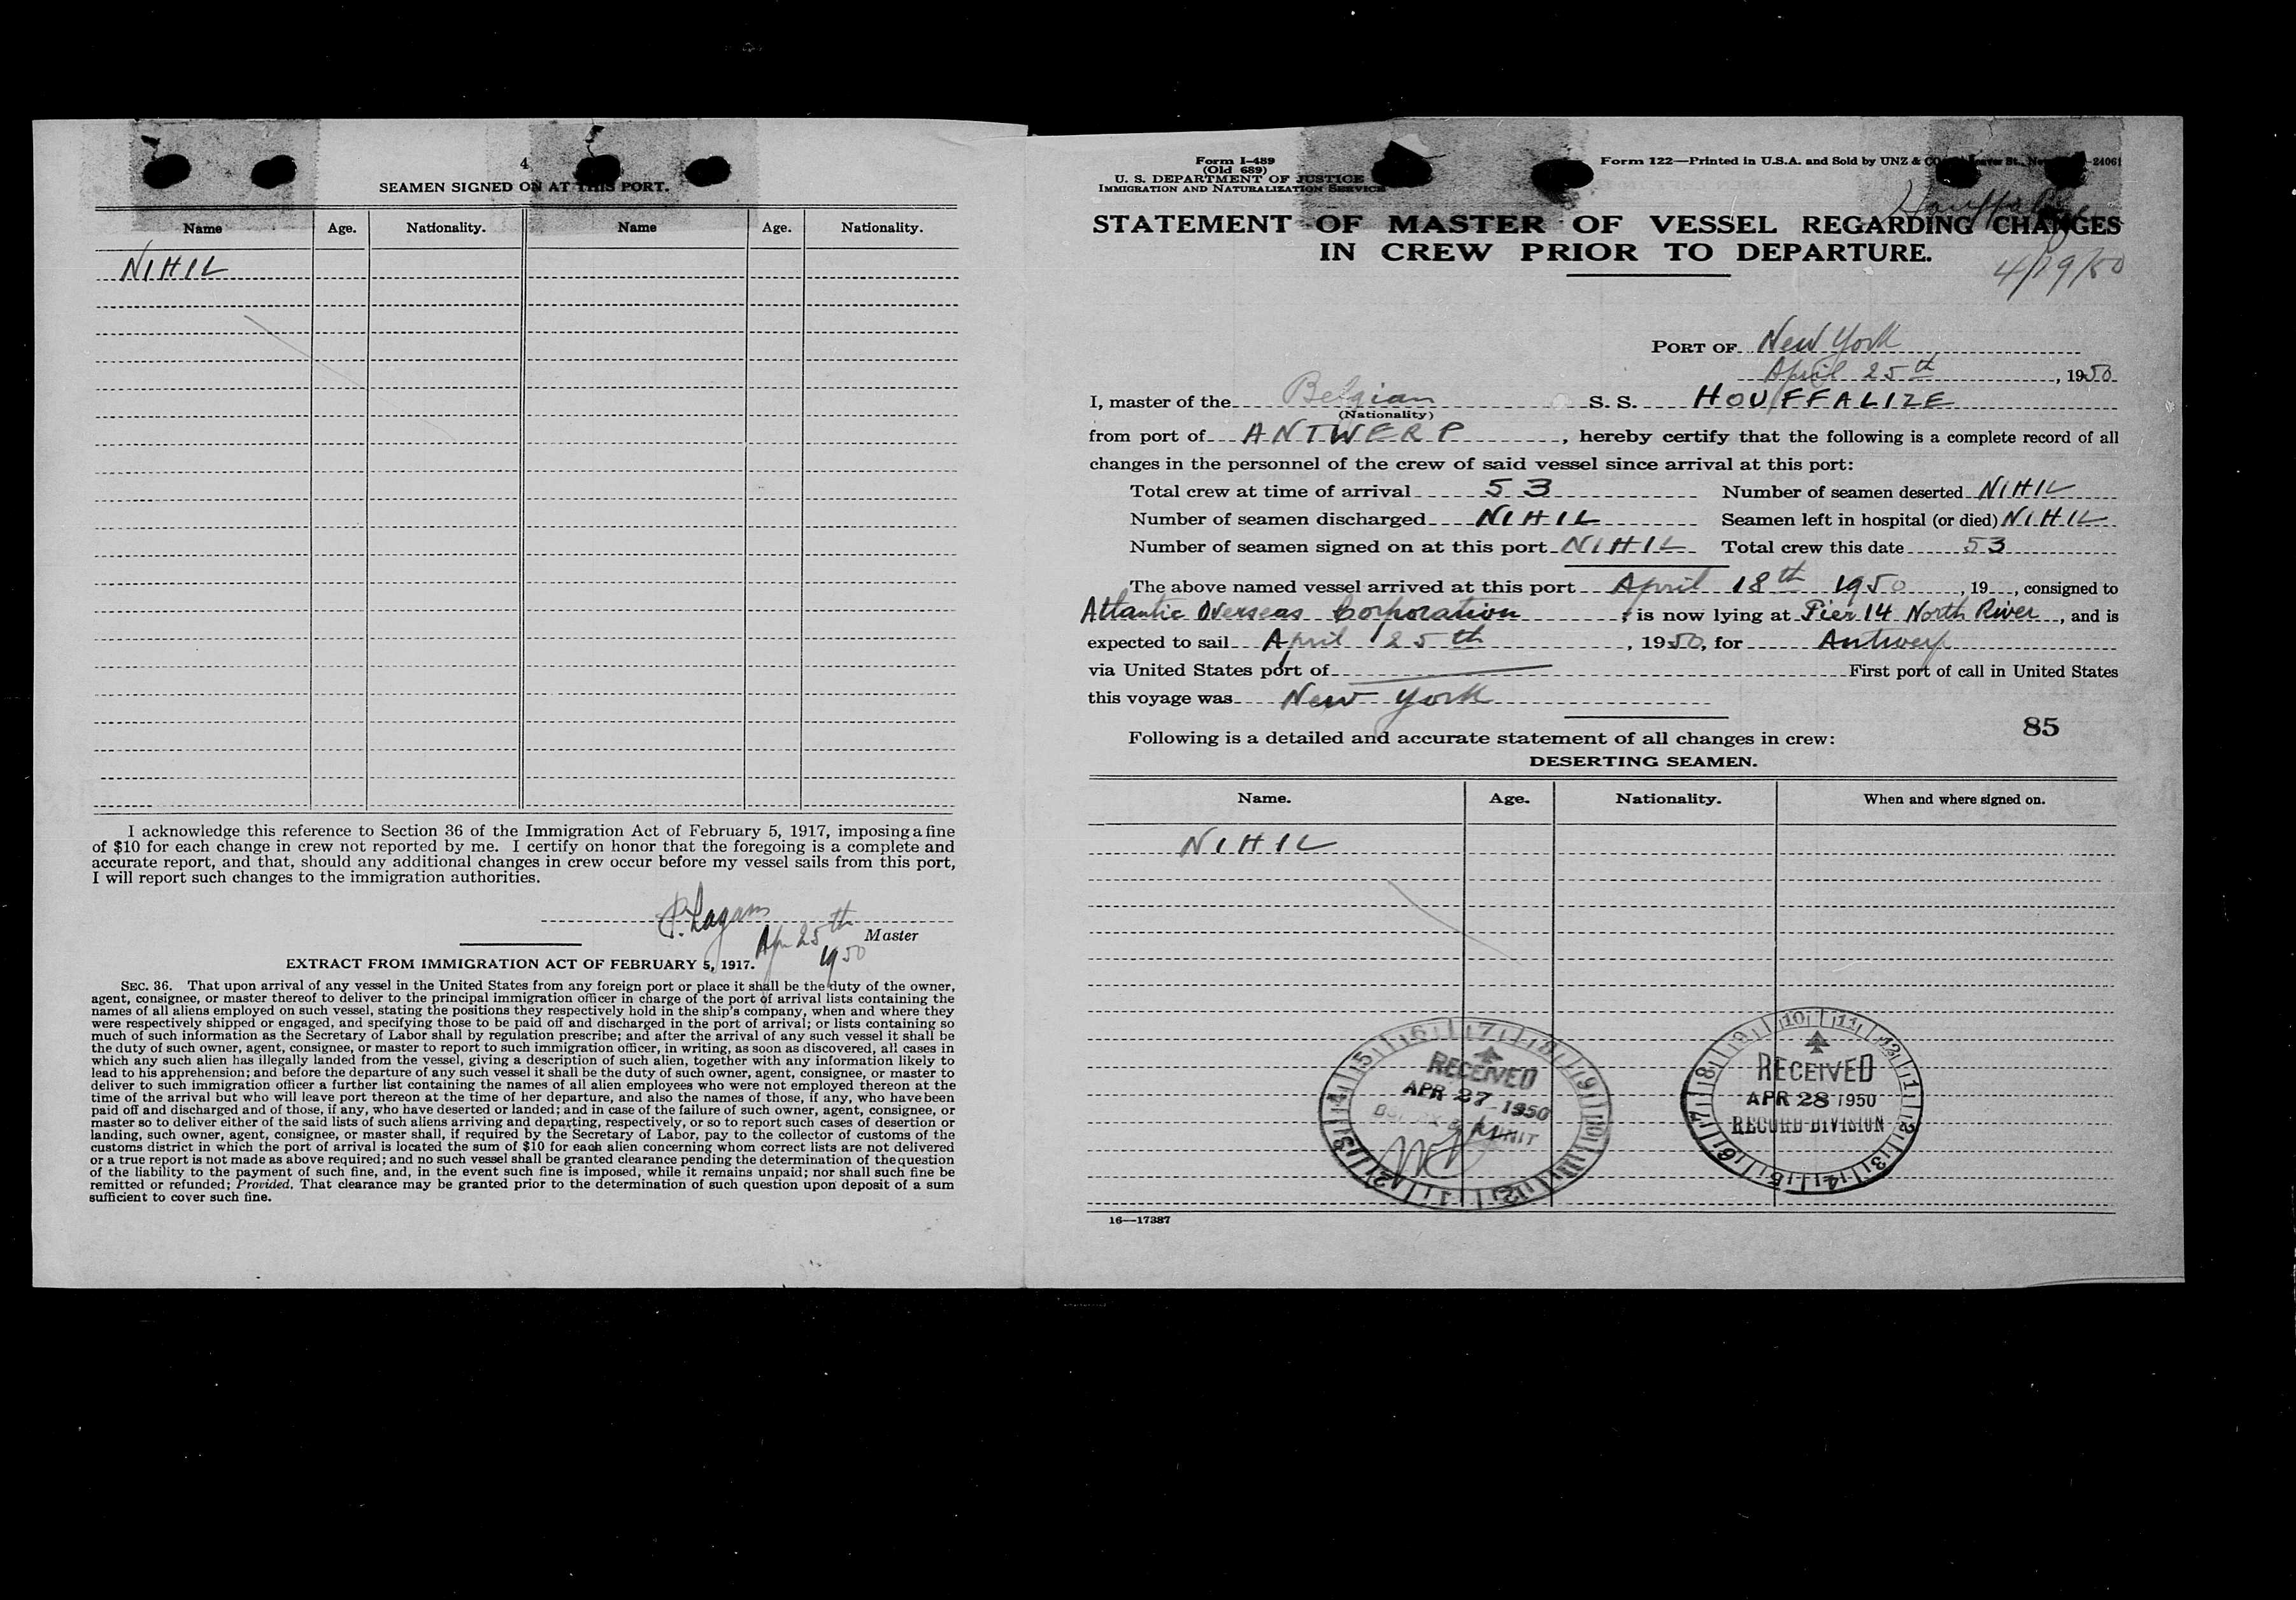 4
SEAMEN SIGNED ON AT THIS PORT.
Name Age. Nationality. Name Age. Nationality.
NIHIL
I acknowledge this reference to Section 36 of the Immigration Act of February 5, 1917, imposing a fine
of $10 for each change in crew not reported by me. I certify on honor that the foregoing is a complete and
accurate report, and that, should any additional changes in crew occur before my vessel sails from this port,
I will report such changes to the immigration authorities.
Apr 25th Master
1950
EXTRACT FROM IMMIGRATION ACT OF FEBRUARY 5, 1917.
SEC. 36. That upon arrival of any vessel in the United States from any foreign port or place it shall be the duty of the owner,
agent, consignee, or master thereof to deliver to the principal immigration officer in charge of the port of arrival lists containing the
names of all aliens employed on such vessel, stating the positions they respectively hold in the ship's company, when and where they
were respectively shipped or engaged, and specifying those to be paid off and discharged in the port of arrival; or lists containing so
much of such information as the Secretary of Labor shall by regulation prescribe; and after the arrival of any such vessel it shall be
the duty of such owner, agent, consignee, or master to report to such immigration officer, in writing, as soon as discovered, all cases in
which any such alien has illegally landed from the vessel, giving a description of such alien, together with any information likely to
lead to his apprehension; and before the departure of any such vessel it shall be the duty of such owner, agent, consignee, or master to
deliver to such immigration officer a further list containing the names of all alien employees who were not employed thereon at the
time of the arrival but who will leave port thereon at the time of her departure, and also the names of those, if any, who have been
paid off and discharged and of those, if any, who have deserted or landed; and in case of the failure of such owner, agent, consignee, or
master so to deliver either of the said lists of such aliens arriving and departing, respectively, or so to report such cases of desertion or
landing, such owner, agent, consignee, or master shall, if required by the Secretary of Labor, pay to the collector of customs of the
customs district in which the port of arrival is located the sum of $10 for each alien concerning whom correct lists are not delivered
or a true report is not made as above required; and no such vessel shall be granted clearance pending the determination of the question
of the liability to the payment of such fine, and, in the event such fine is imposed, while it remains unpaid; nor shall such fine be
remitted or refunded; Provided, That clearance may be granted prior to the determination of such question upon deposit of a sum
sufficient to cover such fine.
Form I-489
(Old 689)
U. S. DEPARTMENT OF JUSTICE
IMMIGRATION AND NATURALIZATION SERVICE
Form 122—Printed in U.S.A. and Sold by UNZ & CO. -24061
Houffalize
STATEMENT OF MASTER OF VESSEL REGARDING CHANGES
IN CREW PRIOR TO DEPARTURE.
4/19/50
PORT OF New York
April 25th, 1950
I, master of the Belgian S. S. HOUFFALIZE
(Nationality)
from port of ANTWERP, hereby certify that the following is a complete record of all
changes in the personnel of the crew of said vessel since arrival at this port:
Total crew at time of arrival 53 Number of seamen deserted NIHIL
Number of seamen discharged NIHIL Seamen left in hospital (or died) NIHIL
Number of seamen signed on at this port NIHIL Total crew this date 53
The above named vessel arrived at this port April 18th 1950, 19, consigned to
Atlantic Overseas Corporation, is now lying at Pier 14 North River, and is
expected to sail April 25th, 1950, for Antwerp
via United States port of First port of call in United States
this voyage was New York
85
Following is a detailed and accurate statement of all changes in crew:
DESERTING SEAMEN.
Name. Age. Nationality. When and where signed on.
NIHIL
RECEIVED
APR 27 1950
UNIT
RECEIVED
APR 28 1950
RECORD DIVISION
16—17387